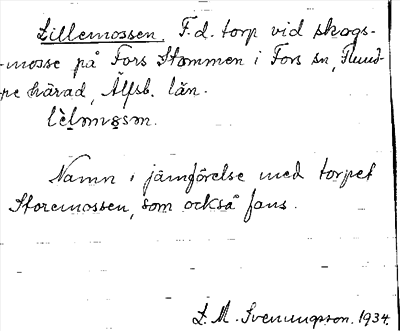 Lillemossen. F.d. torp vid skogs-
-mosse på Fors Stommen i Fors sn, Flund-
re härad, Älfsb. län.
lèlmɷsən.
Namn i jämförelse med torpet
Storemossen, som också fans.
L. M. Svenungsson. 1934.